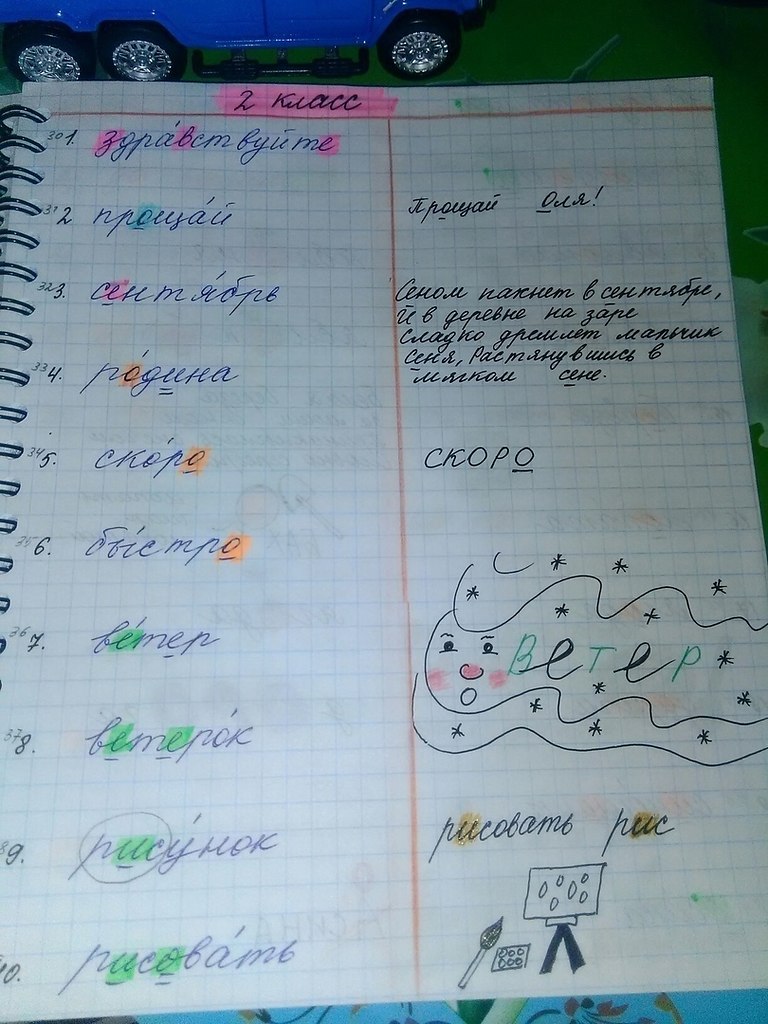 2 класс
301. здра́вствуйте
312 проща́й
Прощай Оля!
323. сентя́брь
Сеном пахнет в сентябре,
И в деревне на заре
Сладко дремлет мальчик
Сеня, Растянувшись в
мягком сене.
334. ро́дина
345. ско́ро
СКОРО
356. бы́стро
367. ве́тер
Ветер
378. ветеро́к
89. рису́нок
рисовать рис
10. рисова́ть